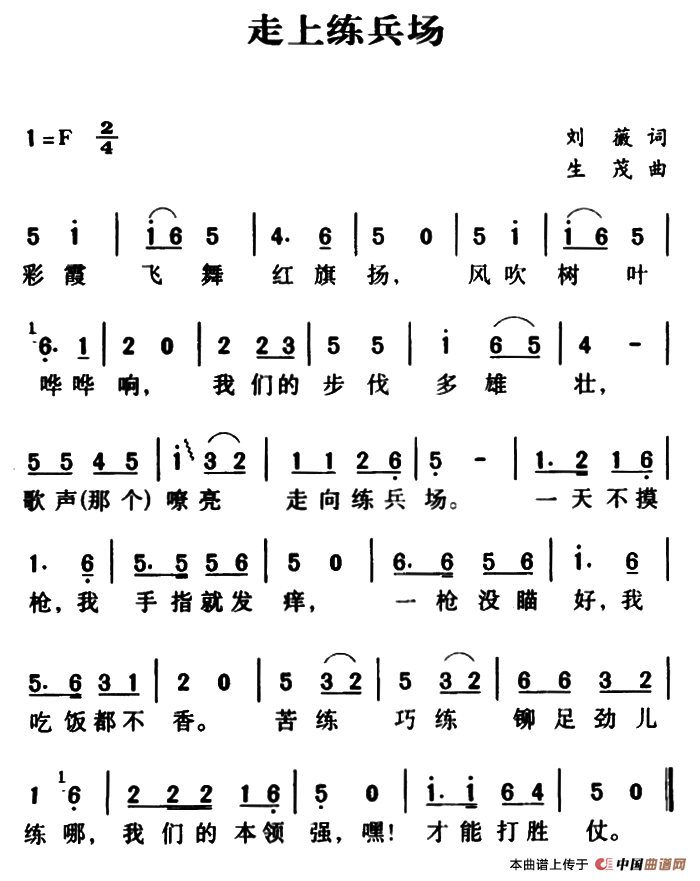 走上练兵场
1=F 2/4
刘 薇 词
生 茂 曲
5 i | i 6 5 | 4. 6 | 5 0 | 5 i | i 6 5 |
彩 霞 飞 舞 红 旗 扬, 风 吹 树 叶
1 6. 1 | 2 0 | 2 2 3 | 5 5 | i 6 5 | 4 - |
哗 哗 响, 我 们 的 步 伐 多 雄 壮,
5 5 4 5 | i 3 2 | 1 1 2 6 | 5 - | 1. 2 1 6 |
歌 声 (那 个) 嘹 亮 走 向 练 兵 场。 一 天 不 摸
1. 6 | 5. 5 5 6 | 5 0 | 6. 6 5 6 | i. 6 |
枪, 我 手 指 就 发 痒, 一 枪 没 瞄 好, 我
5. 6 3 1 | 2 0 | 5 3 2 | 5 3 2 | 6 6 3 3 |
吃 饭 都 不 香。 苦 练 巧 练 铆 足 劲 儿
1 1 6 | 2 2 2 2 | 1 6 | 5 0 | i i. i 6 4 | 5 0 ‖
练 哪, 我 们 的 本 领 强, 嘿! 才 能 打 胜 仗。
本曲谱上传于 中国曲谱网